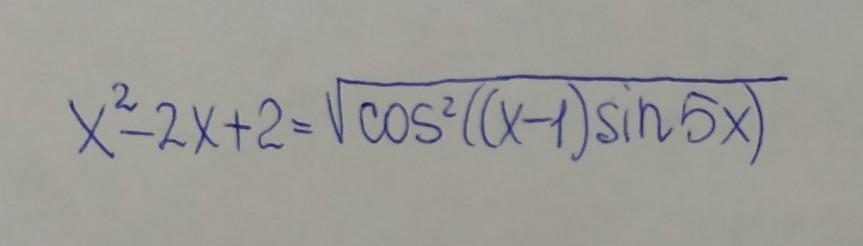 x²-2x+2=√cos²((x-1)sin5x)